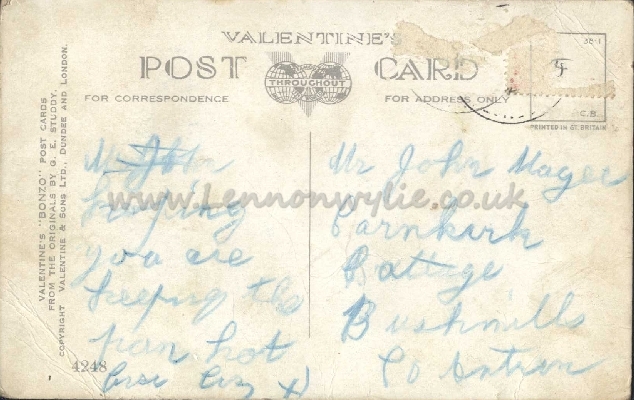 VALENTINE'S
POST CARD
THROUGHOUT
FOR CORRESPONDENCE
FOR ADDRESS ONLY
38-1
C.B.
PRINTED IN GT. BRITAIN
VALENTINE'S "BONZO" POST CARDS
FROM THE ORIGINALS BY G. E. STUDDY.
COPYRIGHT VALENTINE & SONS LTD., DUNDEE AND LONDON.
www.Lennonwylie.co.uk
hoping
you are
keeping the
pan hot
4248
Mr John Magee
Carnkirk
Cottage
Bushmills
Co Antrim